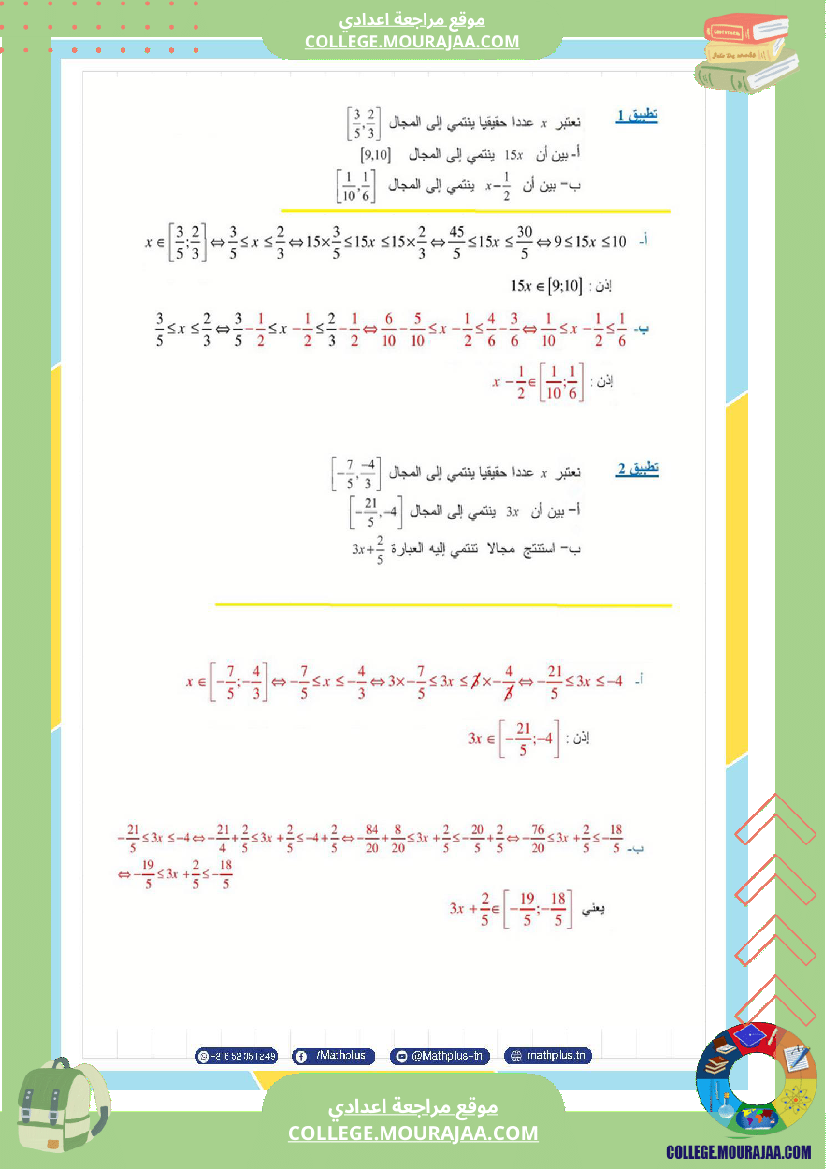 موقع مراجعة اعدادي
COLLEGE.MOURAJAA.COM
تطبيق 1
نعتبر x عددا حقيقيا ينتمي إلى المجال [3/5, 2/3]
أ- بين أن 15x ينتمي إلى المجال [9,10]
ب- بين أن x-1/2 ينتمي إلى المجال [1/10, 1/6]
أ- x∈[3/5;2/3]⇔3/5≤x≤2/3⇔15×3/5≤15x≤15×2/3⇔45/5≤15x≤30/5⇔9≤15x≤10
إذن : 15x∈[9;10]
ب- 3/5≤x≤2/3⇔3/5-1/2≤x-1/2≤2/3-1/2⇔6/10-5/10≤x-1/2≤4/6-3/6⇔1/10≤x-1/2≤1/6
إذن : x-1/2∈[1/10;1/6]
تطبيق 2
نعتبر x عددا حقيقيا ينتمي إلى المجال [-7/5, -4/3]
أ- بين أن 3x ينتمي إلى المجال [-21/5,-4]
ب- استنتج مجالا تنتمي إليه العبارة 3x+2/5
أ- x∈[-7/5;-4/3]⇔-7/5≤x≤-4/3⇔3×-7/5≤3x≤3×-4/3⇔-21/5≤3x≤-4
إذن : 3x∈[-21/5;-4]
ب- -21/5≤3x≤-4⇔-21/4+2/5≤3x+2/5≤-4+2/5⇔-84/20+8/20≤3x+2/5≤-20/5+2/5⇔-76/20≤3x+2/5≤-18/5
⇔-19/5≤3x+2/5≤-18/5
يعني 3x+2/5∈[-19/5;-18/5]
/Mathplus
@Mathplus-tn
mathplus.tn
موقع مراجعة اعدادي
COLLEGE.MOURAJAA.COM
COLLEGE.MOURAJAA.COM